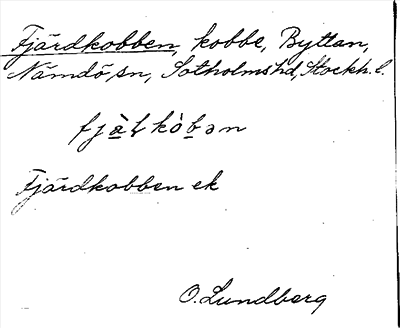 Fjärdkobben, kobbe, Byttan,
Nämdö sn, Sotholms hd, Stockh. l.
fjà̱ḷkòḇən
Fjärdkobben ek
O. Lundberg